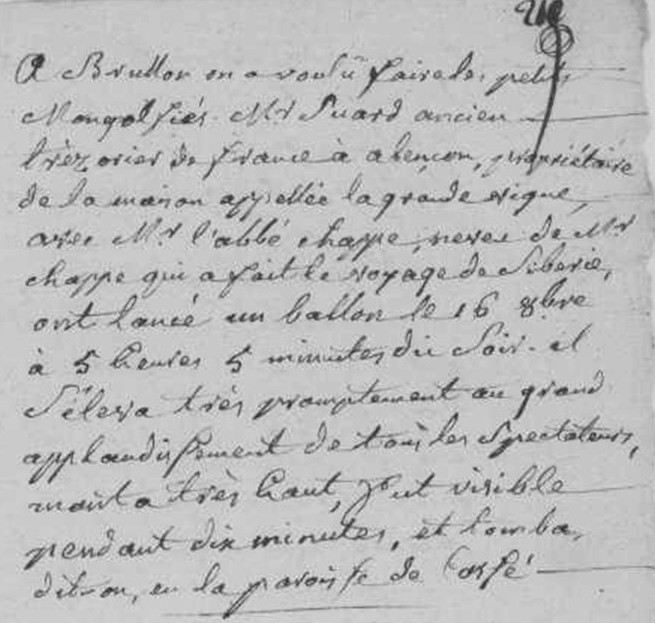 A Brullon on a voulû faire des petits
Mongolfiés. Mr Suard ancien
trèzorier de france à alençon, propriétaire
de la maison appellée la grande vigne,
avec Mr l'abbé chappe, neveu de Mr
chappe qui a fait le voyage de Siberie,
ont lancé un ballon le 16 8bre
à 5 heures 5 minutes du Soir. il
S'éleva très promptement au grand
applaudissement de tous les Spectateurs,
monta très haut, fut visible
pendant dix minutes, et tomba,
dit-on, en la paroisse de